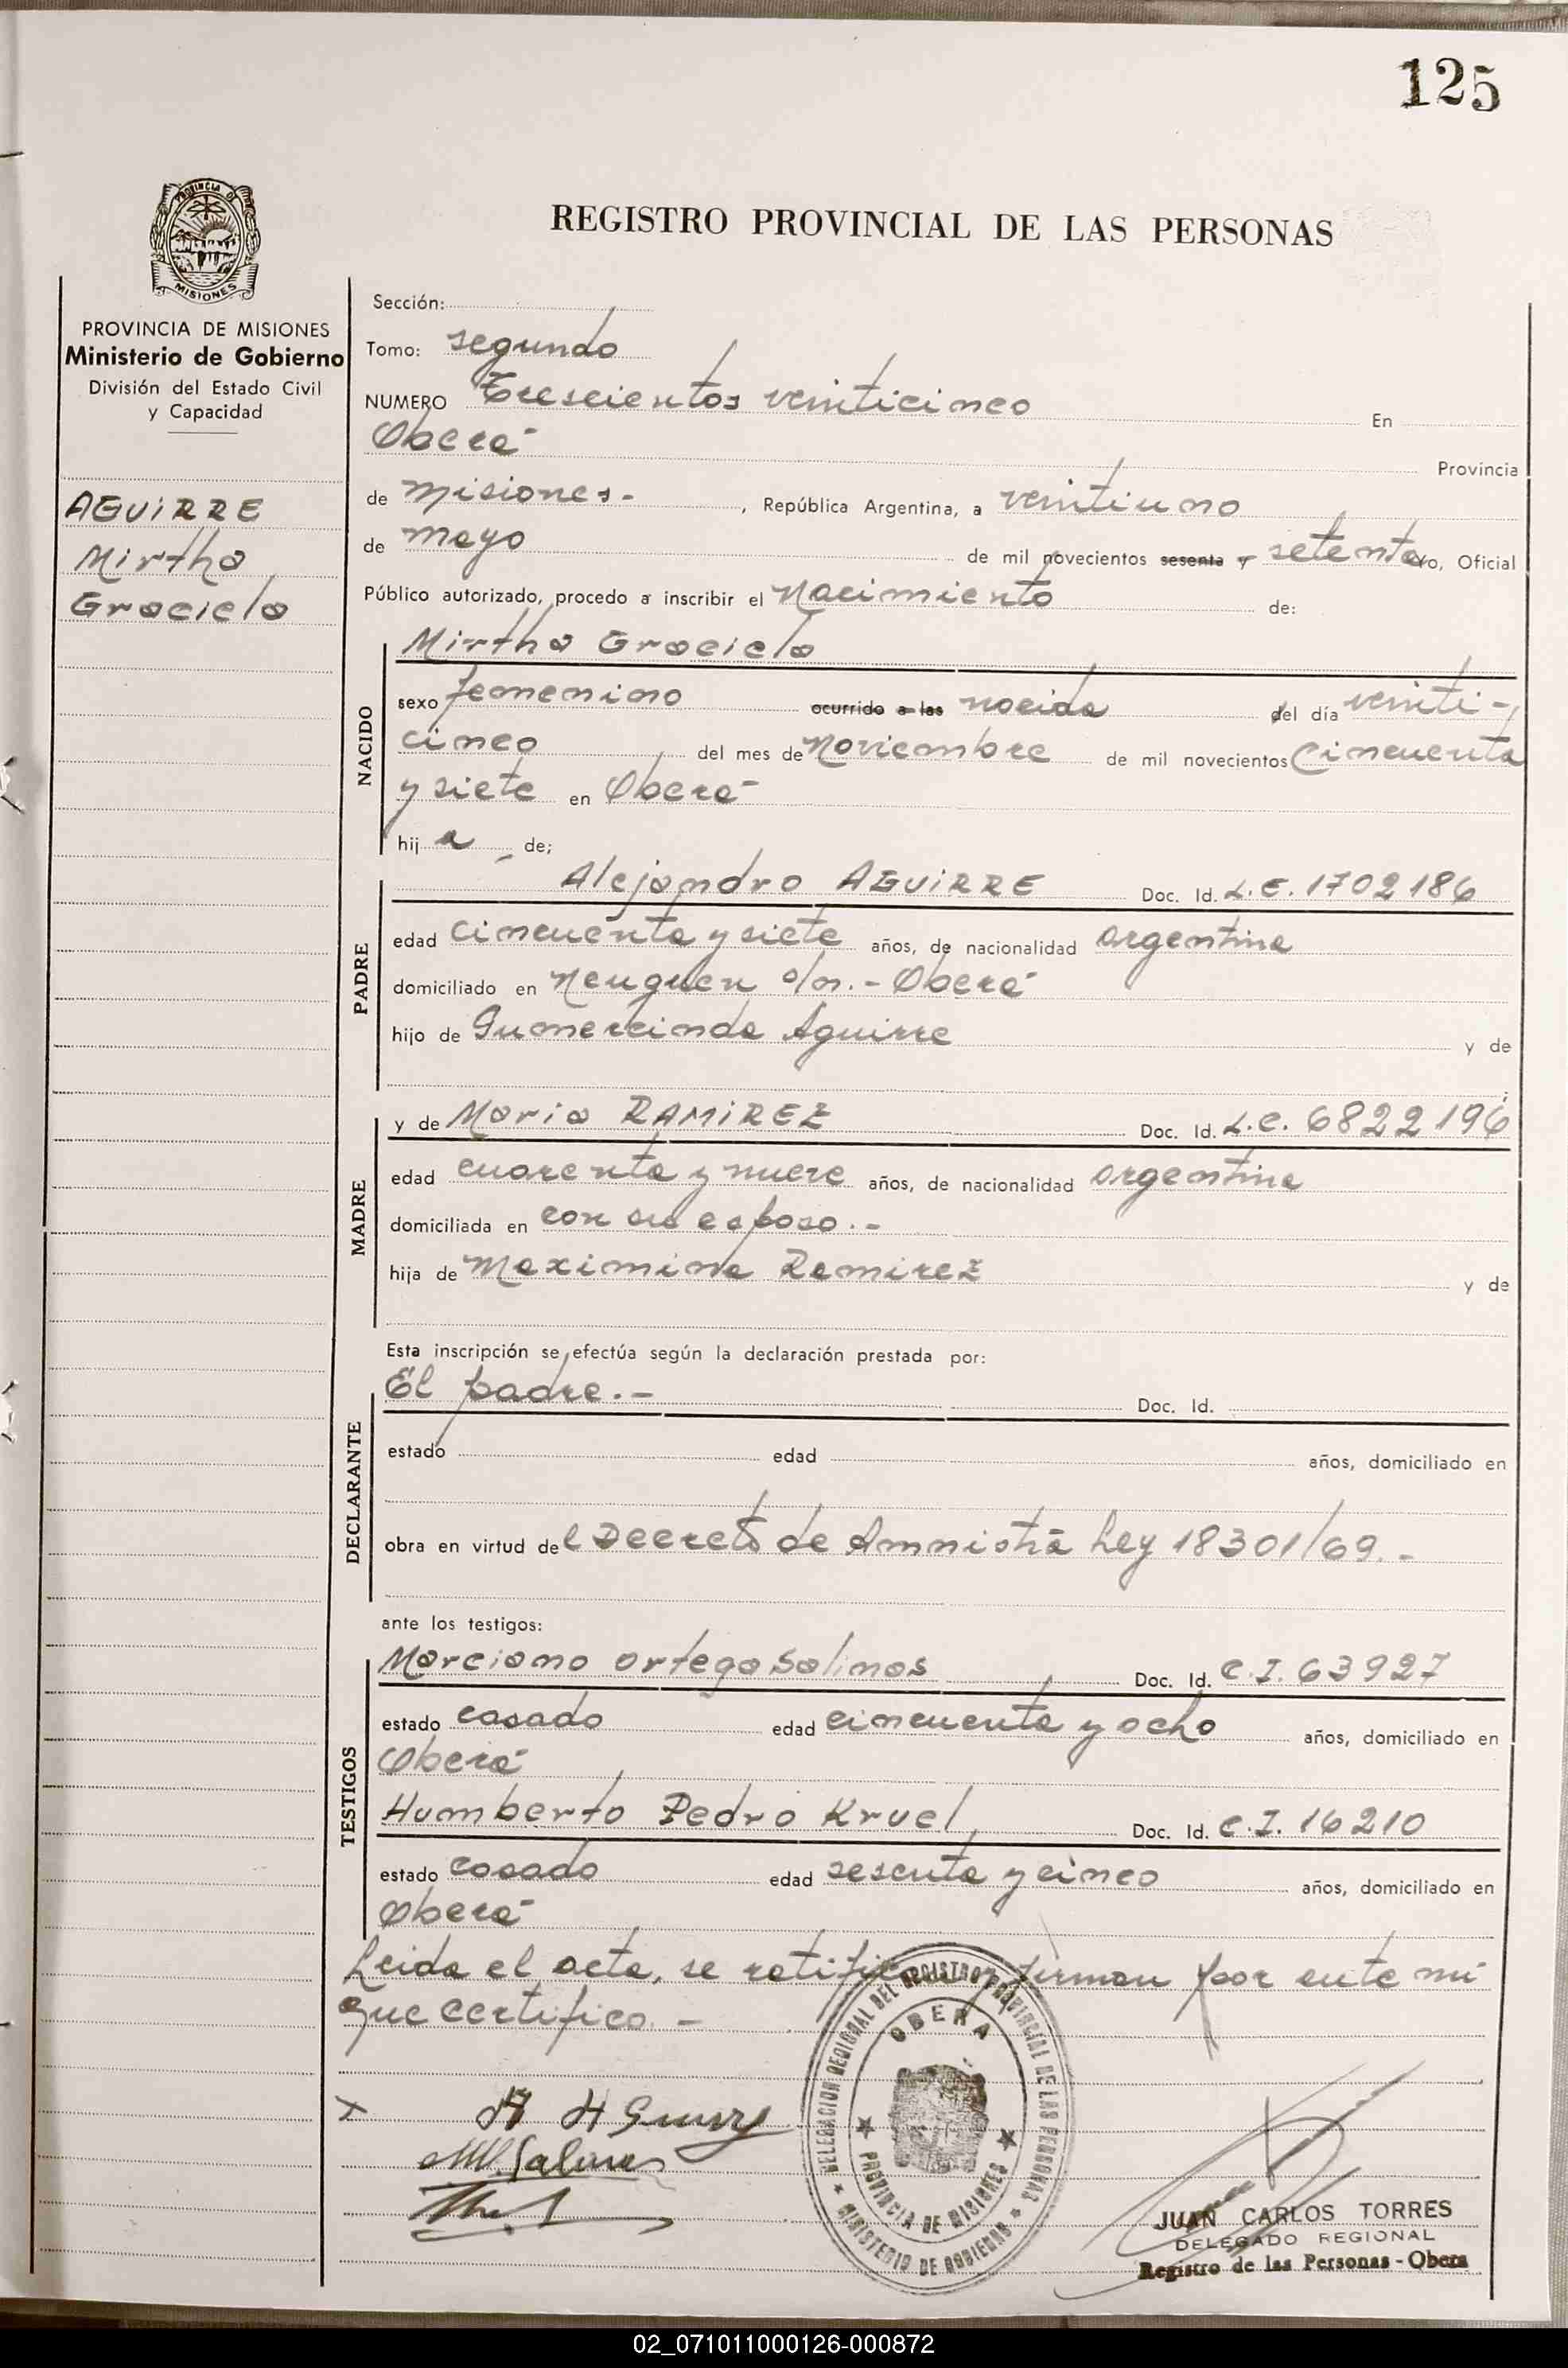 125
PROVINCIA DE
MISIONES
REGISTRO PROVINCIAL DE LAS PERSONAS
PROVINCIA DE MISIONES
Ministerio de Gobierno
División del Estado Civil
y Capacidad
AGUIRRE
Mirtha
Graciela
Sección:
Tomo: segundo
NUMERO Trescientos veinticinco En
Oberá
Provincia
de Misiones.- , República Argentina, a veintiuno
de mayo de mil novecientos sesenta y setenta yo, Oficial
Público autorizado, procedo a inscribir el Nacimiento de:
NACIDO
Mirtha Graciela
sexo femenino ocurrido a las nacida del día veinti-
cinco del mes de Noviembre de mil novecientos Cincuenta
y siete en Oberá
hij a de;
PADRE
Alejandro AGUIRRE Doc. Id. L.E. 1702186
edad cincuenta y siete años, de nacionalidad argentina
domiciliado en Neuquen s/n.- Oberá
hijo de Gumercinda Aguirre y de
MADRE
y de Maria RAMIREZ Doc. Id. L.C. 6822196
edad cuarenta y nueve años, de nacionalidad argentina
domiciliada en con su esposo.-
hija de Maximina Ramirez y de
Esta inscripción se efectúa según la declaración prestada por:
DECLARANTE
El padre.- Doc. Id.
estado edad años, domiciliado en
obra en virtud de l Decreto de Amnistía Ley 18301/69.-
ante los testigos:
TESTIGOS
Marciano Ortega Salinas Doc. Id. C.I. 63927
estado casado edad cincuenta y ocho años, domiciliado en
Oberá
Humberto Pedro Kruel Doc. Id. C.I. 16210
estado casado edad sesenta y cinco años, domiciliado en
Oberá
Leida el acta, se ratifican y firman por ante mi
que certifico.-
DELEGACION REGIONAL DEL REGISTRO PROVINCIAL DE LAS PERSONAS
OBERA
PROVINCIA DE MISIONES
MINISTERIO DE GOBIERNO
Salinas
JUAN CARLOS TORRES
DELEGADO REGIONAL
Registro de las Personas - Obera
02_071011000126-000872